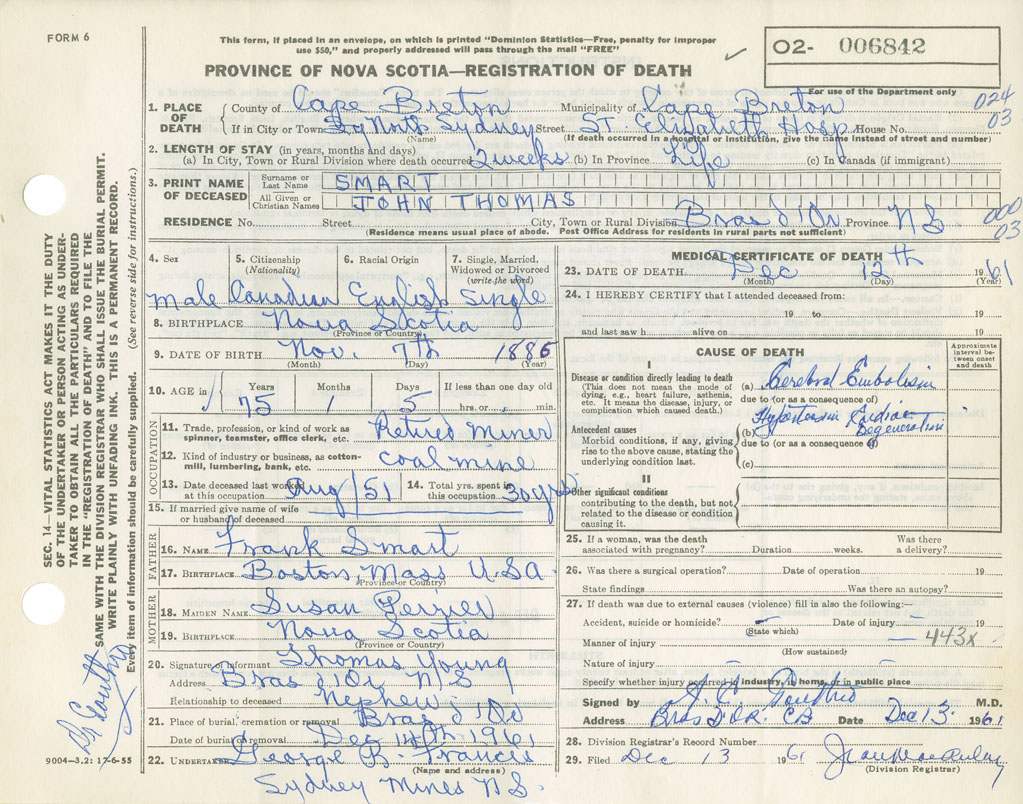 FORM 6
This form, if placed in an envelope, on which is printed "Dominion Statistics—Free, penalty for improper
use $50," and properly addressed will pass through the mail "FREE"
PROVINCE OF NOVA SCOTIA—REGISTRATION OF DEATH
02- 006842
For use of the Department only
024
03
1. PLACE OF DEATH County of Cape Breton Municipality of Cape Breton
If in City or Town North Sydney Street ST. Elizabeth Hosp House No.
(Name) (If death occurred in a hospital or institution, give the name instead of street and number)
2. LENGTH OF STAY (in years, months and days)
(a) In City, Town or Rural Division where death occurred 2 weeks (b) In Province Life (c) In Canada (if immigrant)
3. PRINT NAME OF DECEASED Surname or Last Name SMART
All Given or Christian Names JOHN THOMAS
RESIDENCE No. Street City, Town or Rural Division Bras d'Or Province N S
000
03
(Residence means usual place of abode. Post Office Address for residents in rural parts not sufficient)
4. Sex 5. Citizenship (Nationality) 6. Racial Origin 7. Single, Married, Widowed or Divorced (write the word)
Male Canadian English Single
8. BIRTHPLACE Nova Scotia
(Province or Country)
9. DATE OF BIRTH Nov. 7th 1886
(Month) (Day) (Year)
10. AGE in Years Months Days If less than one day old
75 1 5 hrs. or min.
OCCUPATION
11. Trade, profession, or kind of work as spinner, teamster, office clerk, etc. Retired Miner
12. Kind of industry or business, as cotton-mill, lumbering, bank, etc. coal mine
13. Date deceased last worked at this occupation Aug/51 14. Total yrs. spent in this occupation 30 yrs
15. If married give name of wife or husband of deceased
FATHER
16. NAME Frank Smart
17. BIRTHPLACE Boston, Mass U.S.A.
(Province or Country)
MOTHER
18. MAIDEN NAME Susan Perrier
19. BIRTHPLACE Nova Scotia
(Province or Country)
20. Signature of informant Thomas Young
Address Bras d'Or N S
Relationship to deceased Nephew
21. Place of burial, cremation or removal Bras d'Or
Date of burial or removal Dec 14th 1961
22. UNDERTAKER George B. Francis
(Name and address)
Sydney Mines N S.
9004—3.2: 17-6-55
MEDICAL CERTIFICATE OF DEATH
23. DATE OF DEATH Dec 12th 1961
(Month) (Day) (Year)
24. I HEREBY CERTIFY that I attended deceased from:
19 to 19
and last saw h alive on 19
CAUSE OF DEATH
Approximate interval between onset and death
I
Disease or condition directly leading to death
(This does not mean the mode of dying, e.g., heart failure, asthenia, etc. It means the disease, injury, or complication which caused death.)
(a) Cerebral Embolism
due to (or as a consequence of)
Antecedent causes
Morbid conditions, if any, giving rise to the above cause, stating the underlying condition last.
(b) Hypertensive Cardiac Degeneration
due to (or as a consequence of)
(c)
II
Other significant conditions
contributing to the death, but not related to the disease or condition causing it.
25. If a woman, was the death associated with pregnancy? Duration weeks. Was there a delivery?
26. Was there a surgical operation? Date of operation 19
State findings Was there an autopsy?
27. If death was due to external causes (violence) fill in also the following:—
Accident, suicide or homicide? (State which) Date of injury 19
Manner of injury 443X
(How sustained)
Nature of injury
Specify whether injury occurred in industry, in home, or in public place
Signed by M.D.
Address Bras D'Or. CB Date Dec 13. 1961
28. Division Registrar's Record Number
29. Filed Dec 13 1961
(Division Registrar)
SEC. 14—VITAL STATISTICS ACT MAKES IT THE DUTY
OF THE UNDERTAKER OR PERSON ACTING AS UNDER-
TAKER TO OBTAIN ALL THE PARTICULARS REQUIRED
IN THE "REGISTRATION OF DEATH" AND TO FILE THE
SAME WITH THE DIVISION REGISTRAR WHO SHALL ISSUE THE BURIAL PERMIT.
WRITE PLAINLY WITH UNFADING INK. THIS IS A PERMANENT RECORD.
Every item of information should be carefully supplied. (See reverse side for instructions.)